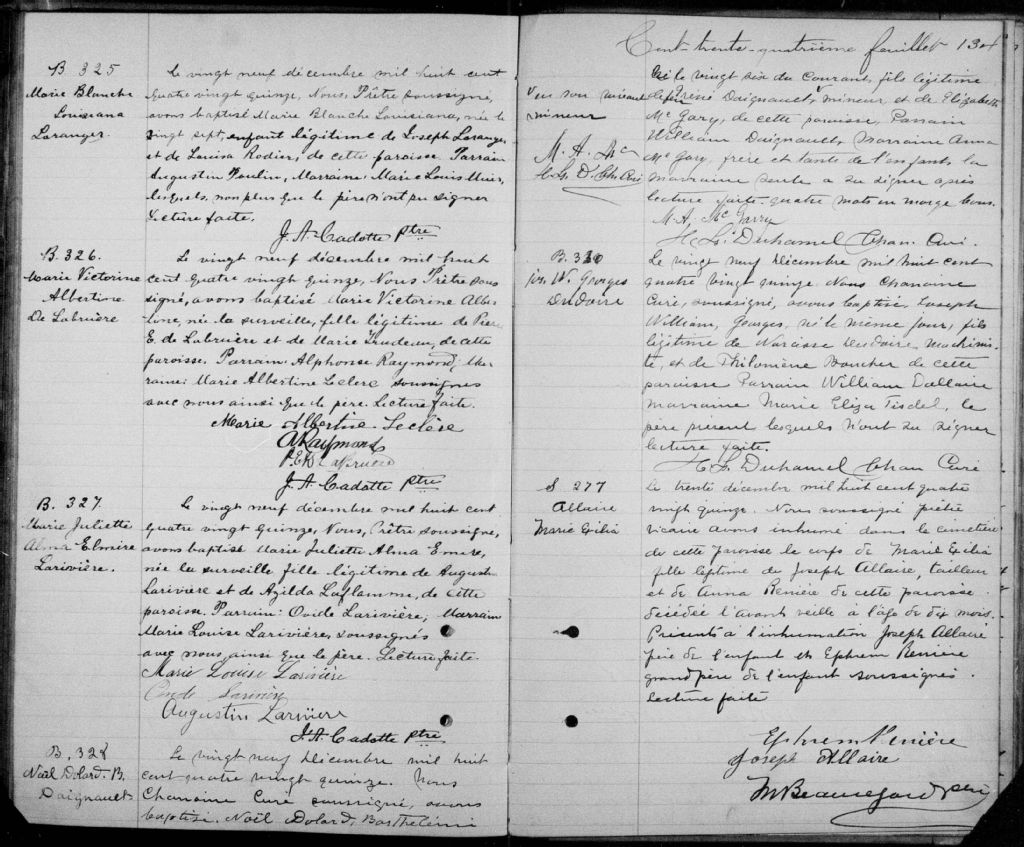 B 325
Marie Blanche
Louisiana
Laranger
Le vingt neuf décembre mil huit cent
quatre vingt quinze, Nous, Prêtre soussigné,
avons baptisé Marie Blanche Louisiana, née le
vingt sept, enfant légitime de Joseph Laranger
et de Louisa Rodier, de cette paroisse. Parrain
Augustin Poulin, Marraine: Marie Louis
lesquels, non plus que le père n'ont pu signer
Lecture faite.
J. A. Cadotte ptre
B. 326.
Marie Victorine
Albertine
De Labruère
Le vingt neuf décembre mil huit
cent quatre vingt quinze, Nous Prêtre sous
signé, avons baptisé Marie Victorine Alber
tine, née la surveille, fille légitime de Pierre
E. de Labruère et de Marie Trudeau, de cette
paroisse. Parrain: Alphonse Raymond; Mar
raine: Marie Albertine Leclerc soussignés
avec nous ainsi que le père. Lecture faite.
Marie Albertine Leclère
A Raymond
P. E. De LaBruère
J. A. Cadotte ptre
B. 327.
Marie Juliette
Alma Elmire
Larivière.
Le vingt neuf décembre mil huit cent
quatre vingt quinze, Nous, Prêtre soussigné,
avons baptisé Marie Juliette Alma Emire,
née la surveille fille légitime de Augustin
Larivière et de Azilda Laflamme, de cette
paroisse. Parrain: Ovide Larivière, Marraine
Marie Louise Larivière, soussignés
avec nous ainsi que le père. Lecture faite.
Marie Louise Larivière
Ovide Larivière
Augustin Larivière
J. A. Cadotte ptre
B. 328
Noël Dolard. B.
Daignault
Le vingt neuf Décembre mil huit
cent quatre vingt quinze. Nous
Chanoine Curé soussigné, avons
baptisé. Noël Dolard, Barthélémi
Cent-trente-quatrième feuillet 134
né le vingt six du Courant, fils légitime
de feu Frére Daignault, mineur et de Elizabeth
Mc Gary, de cette paroisse, Parrain
William Daignault, Marraine Anna
Mc Gary, frère et tante de l'enfant, la
marraine seule a su signer après
lecture faite. quatre mots en marge bons.
en son vivant
mineur
M. A. Mc
H. Ls. D. Ch. Curé
M. A. Mc Garry
H. Ls. Duhamel Chan. Curé.
B. 330
Jos. W. Georges
Dudoire
Le vingt neuf Décembre mil huit cent
quatre vingt quinze. Nous Chanoine
Curé, soussigné, avons baptisé, Joseph
William, Georges, né le même jour, fils
légitime de Narcisse Dudoire, Machinis
te, et de Philomène Boucher de cette
paroisse Parrain William Dallaire
marraine Marie Eliza Tisdel, le
père présent lesquels n'ont su signer
lecture faite.
H. Ls Duhamel Chan Curé
S 277
Allaire
Marie Exilia
Le trente décembre mil huit cent quatre
vingt quinze. Nous soussigné prêtre
vicaire avons inhumé dans le cimetière
de cette paroisse le corps de Marie Exilia
fille légitime de Joseph Allaire, tailleur
et de Anna Renière de cette paroisse
décédée l'avant veille à l'âge de dix mois.
Présents à l'inhumation Joseph Allaire
père de l'enfant et Ephrem Renière
grand père de l'enfant soussignés.
lecture faite
Ephrem Renière
Joseph Allaire
M Beauregard ptre